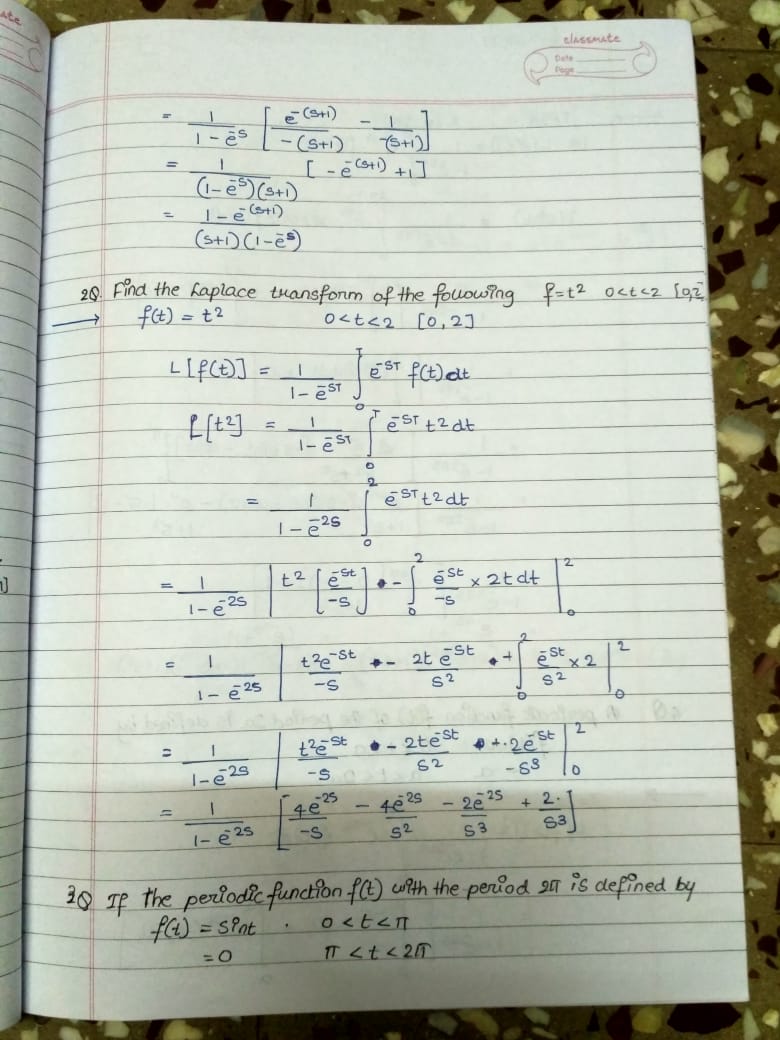 ate
classmate
Date
Page
= 1/(1-e^-s) [ e^-(s+1)/-(s+1) - 1/-(s+1) ]
= 1/((1-e^-s)(s+1)) [ -e^-(s+1) +1 ]
= (1-e^-(s+1))/((s+1)(1-e^-s))
2Q. Find the Laplace transform of the following f=t² 0<t<2 [0,2
→ f(t) = t² 0<t<2 [0,2]
L[f(t)] = 1/(1-e^-sT) ∫₀ᵀ e^-sT f(t)dt
L[t²] = 1/(1-e^-sT) ∫₀ᵀ e^-sT t² dt
= 1/(1-e^-2s) ∫₀² e^-sT t² dt
= 1/(1-e^-2s) | t² [e^-st/-s] - ∫₀² e^-st/-s × 2t dt |₀²
= 1/(1-e^-2s) | t²e^-st/-s - 2te^-st/s² + ∫₀² e^-st/s² × 2 |₀²
= 1/(1-e^-2s) | t²e^-st/-s - 2te^-st/s² + 2e^-st/-s³ |₀²
= 1/(1-e^-2s) [ 4e^-2s/-s - 4e^-2s/s² - 2e^-2s/s³ + 2/s³ ]
3Q If the periodic function f(t) with the period 2π is defined by
f(t) = sint . 0<t<π
=0 π<t<2π